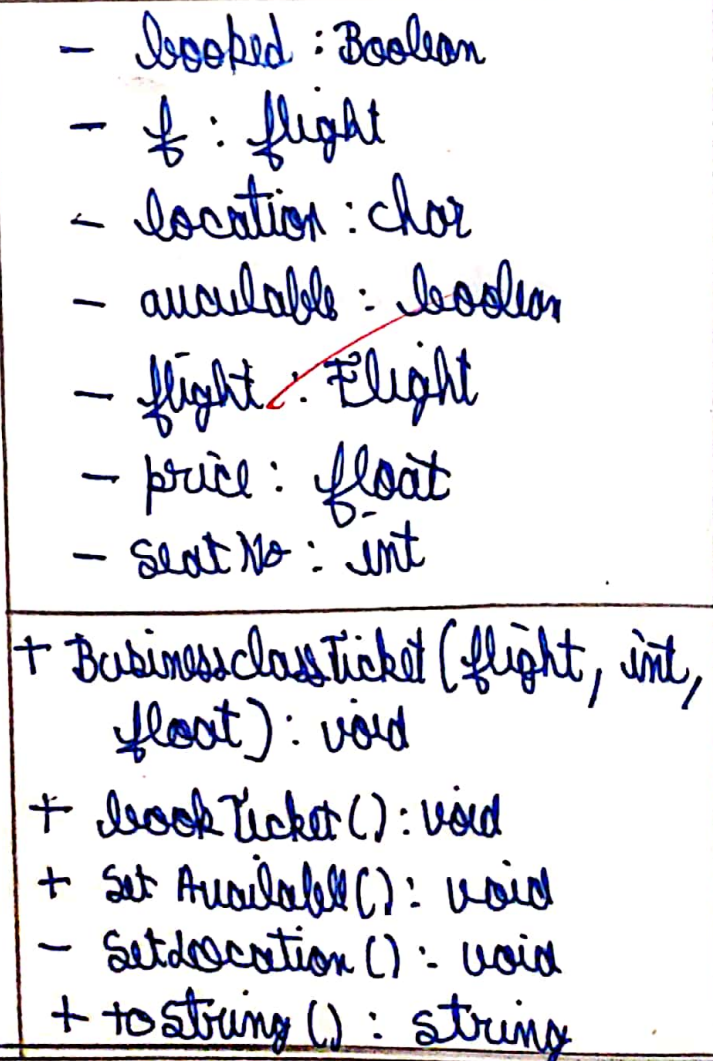 - booked : Boolean
- f : flight
- location : char
- available : boolean
- flight : Flight
- price : float
- seat No : int
+ BusinessclassTicket (flight, int,
float) : void
+ book Ticket () : void
+ Set Available () : void
- SetLocation () : void
+ to String () : string